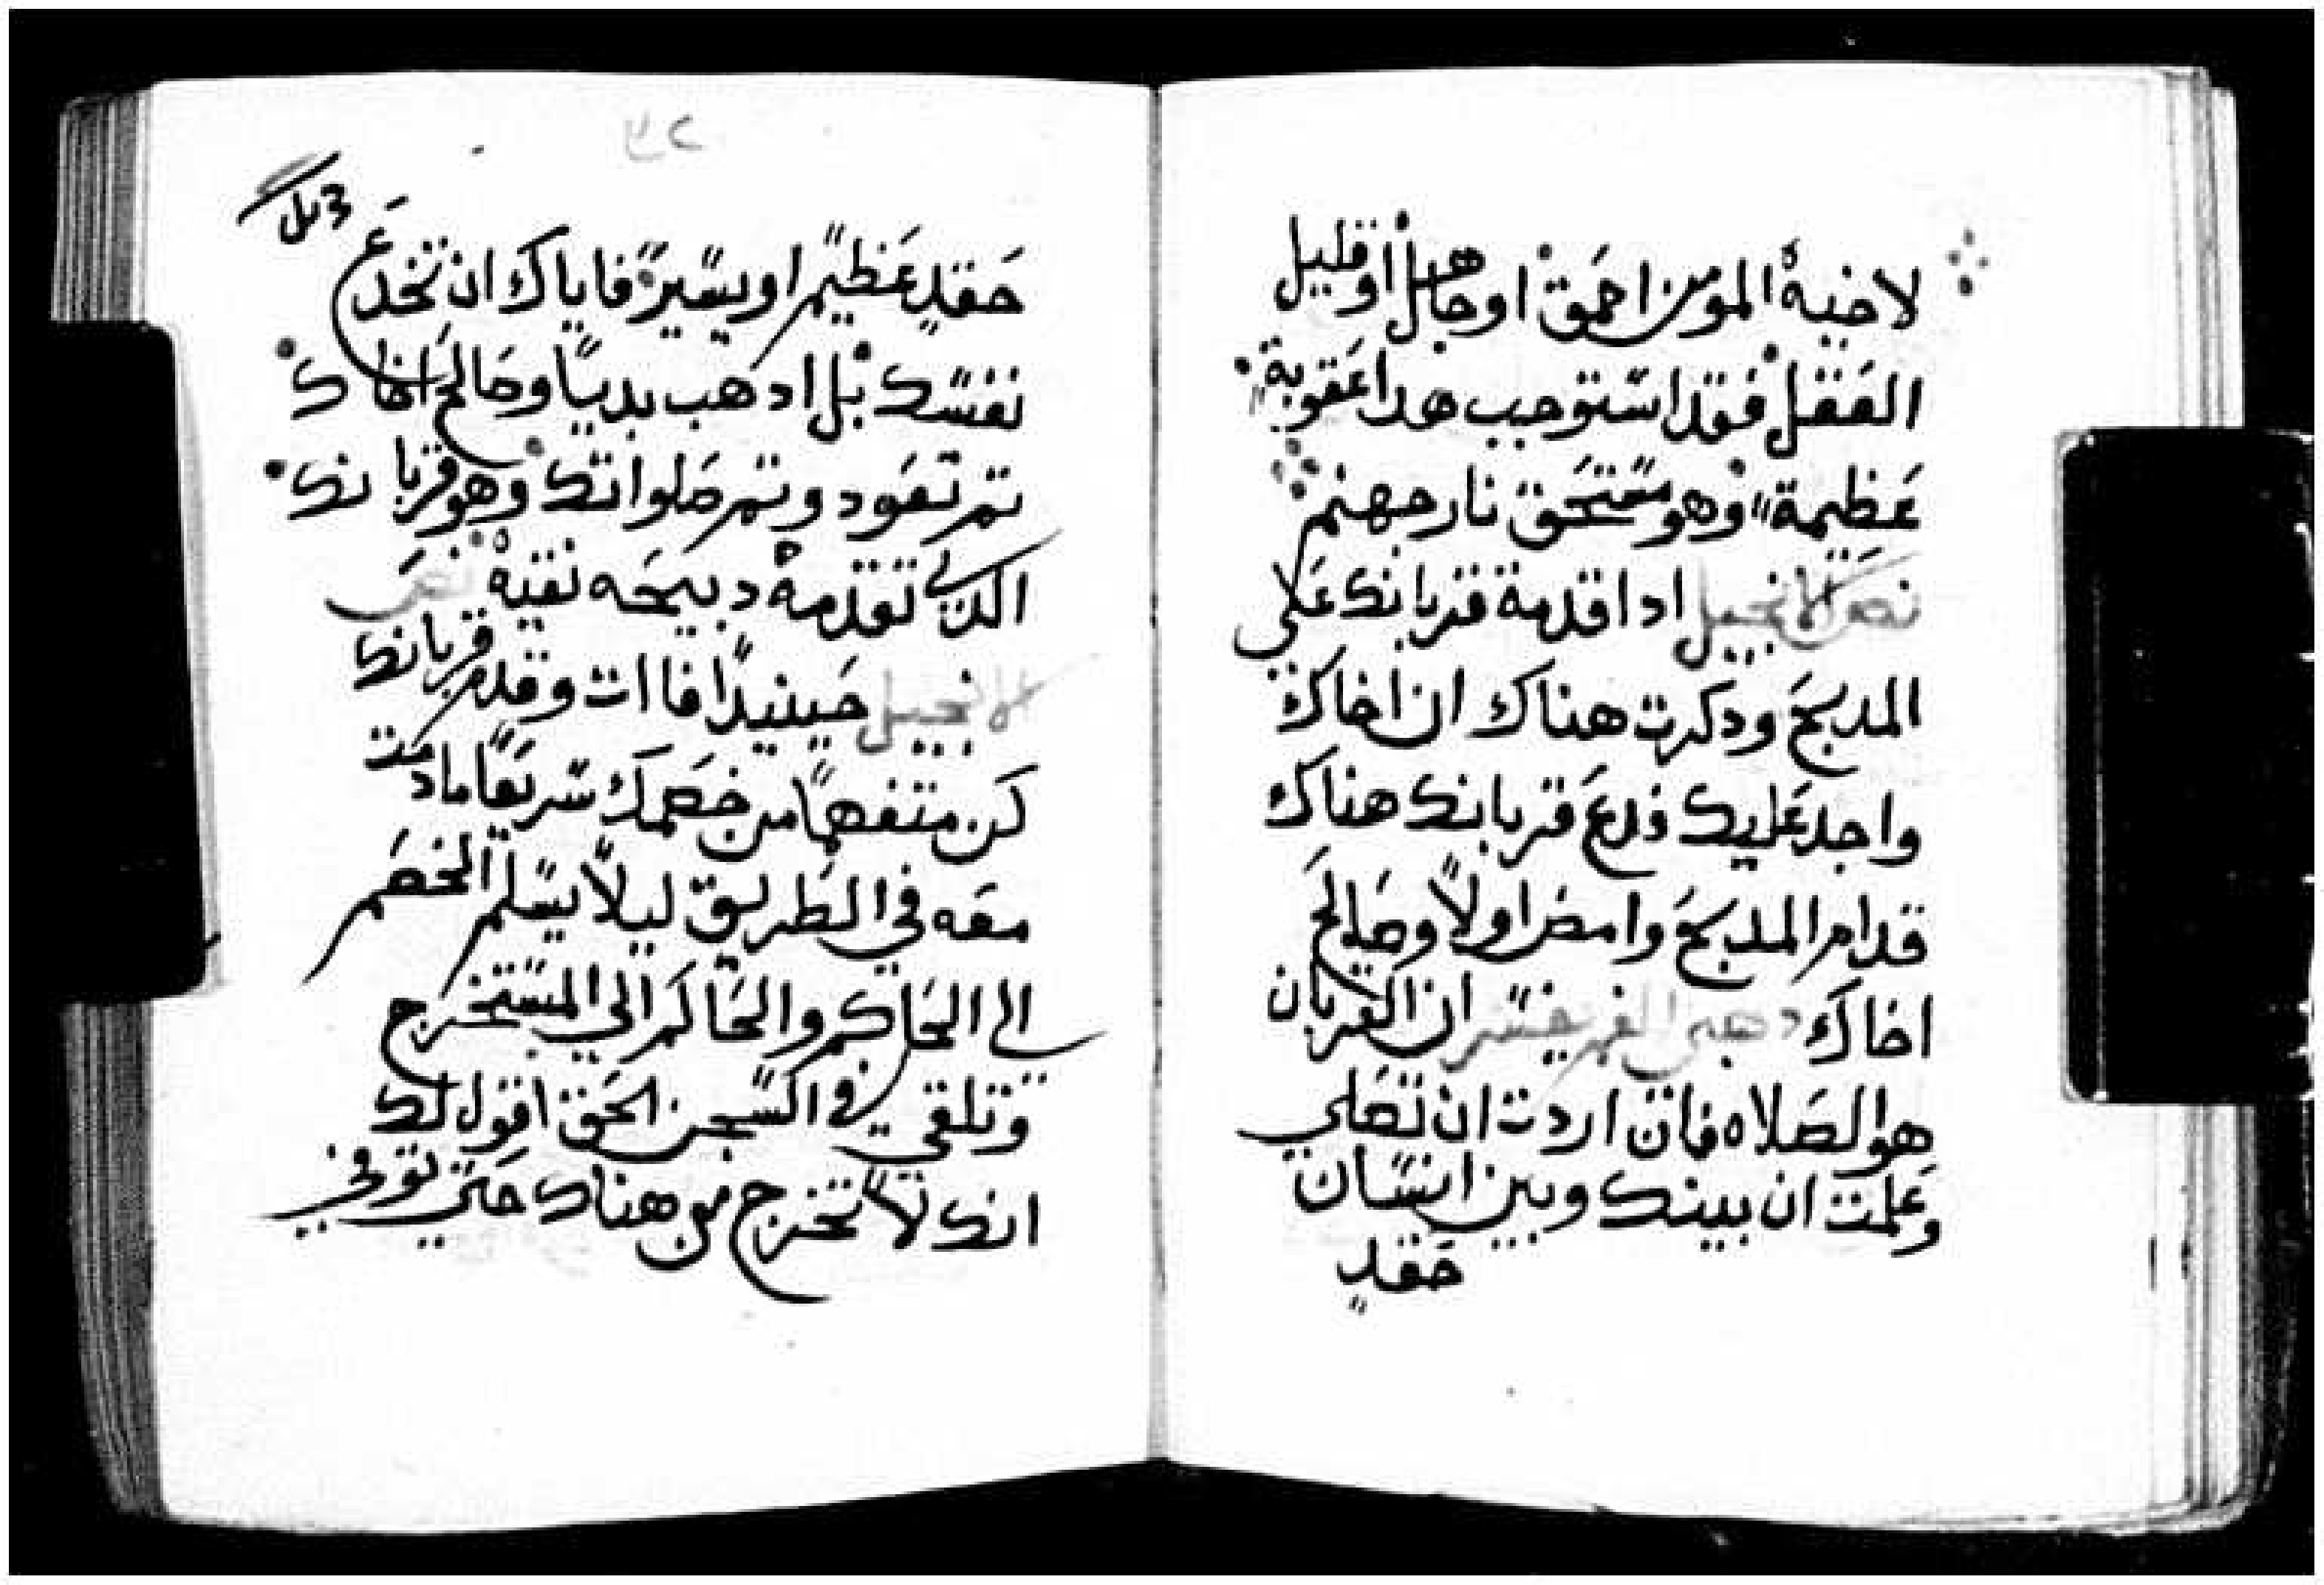 لاخيهُ المومن احمق اوجاهل اوقليل
العَقل فقد استوجب هدا عَقوبة
عَظيمة وهو مستحَق نار جهنم
نص الانجيل ادا قدمة قربانك عَلي
المدبحَ ودكرت هناك ان اخاك
واجد عَليك فدعَ قربانك هناك
قدام المدبحَ وامض اولاً وصَالحَ
اخاك دهبي الفم يفسر ان القربان
هو الصَلاه فان اردت ان تصَلي
وعَلمت ان بينك وبين انسان
حَقدٍ
حَقدٍ عَظيم او يسير فاياك ان تخدعَ
نفسك بل ادهب بديًا وصَالحَ اخاك
تم تعَود وتمم صَلواتك وهو قربانك
الدي تقدمهُ دبيحَه نقيهْ نص
الانجيل حَينيدًا فاات وقدم قربانك
كَن متفهمًا من خصَمك سَريعًا مادمت
معَه في الطريق ليلاً يسَلم الخصَم
الي الحَاكم والحَاكم الي المستخرج
وتلقي في السجن الحَق اقول لك
انك لا تخرج من هناك حَتي توفي